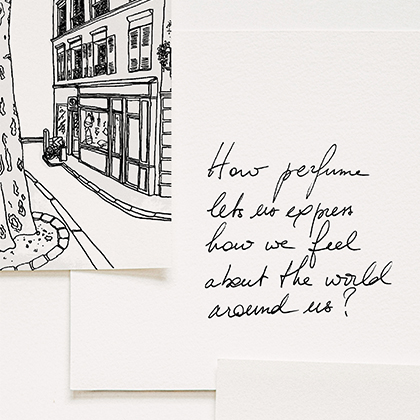 How perfume
lets us express
how we feel
about the world
around us?